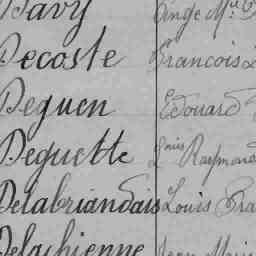 Davy Ange M
Decoste Francois
Deguen Edouard
Deguette Louis Raymond
Delabriandais Louis Fra
Delachienne Jean Marie